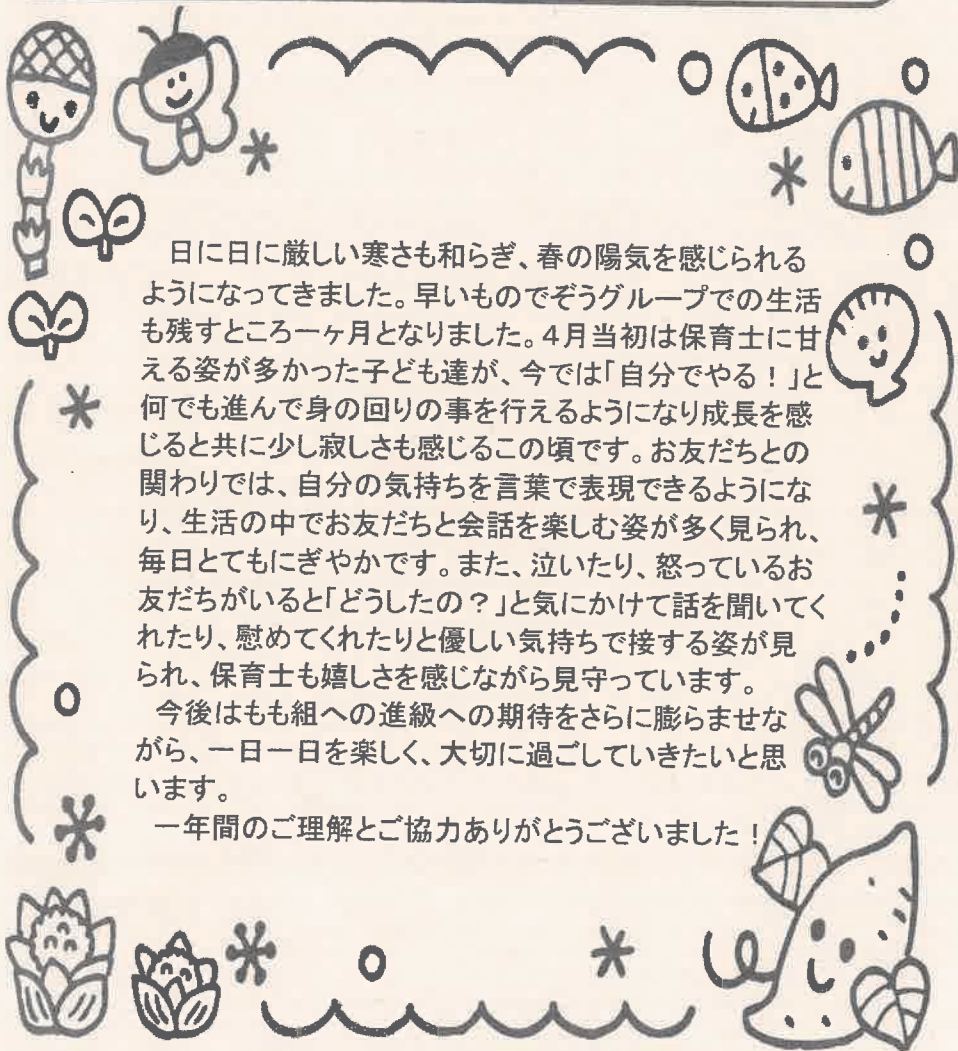 日に日に厳しい寒さも和らぎ、春の陽気を感じられる
ようになってきました。早いものでぞうグループでの生活
も残すところ一ヶ月となりました。４月当初は保育士に甘
える姿が多かった子ども達が、今では「自分でやる！」と
何でも進んで身の回りの事を行えるようになり成長を感
じると共に少し寂しさも感じるこの頃です。お友だちとの
関わりでは、自分の気持ちを言葉で表現できるようにな
り、生活の中でお友だちと会話を楽しむ姿が多く見られ、
毎日とてもにぎやかです。また、泣いたり、怒っているお
友だちがいると「どうしたの？」と気にかけて話を聞いてく
れたり、慰めてくれたりと優しい気持ちで接する姿が見
られ、保育士も嬉しさを感じながら見守っています。
今後はもも組への進級への期待をさらに膨らませな
がら、一日一日を楽しく、大切に過ごしていきたいと思
います。
一年間のご理解とご協力ありがとうございました！